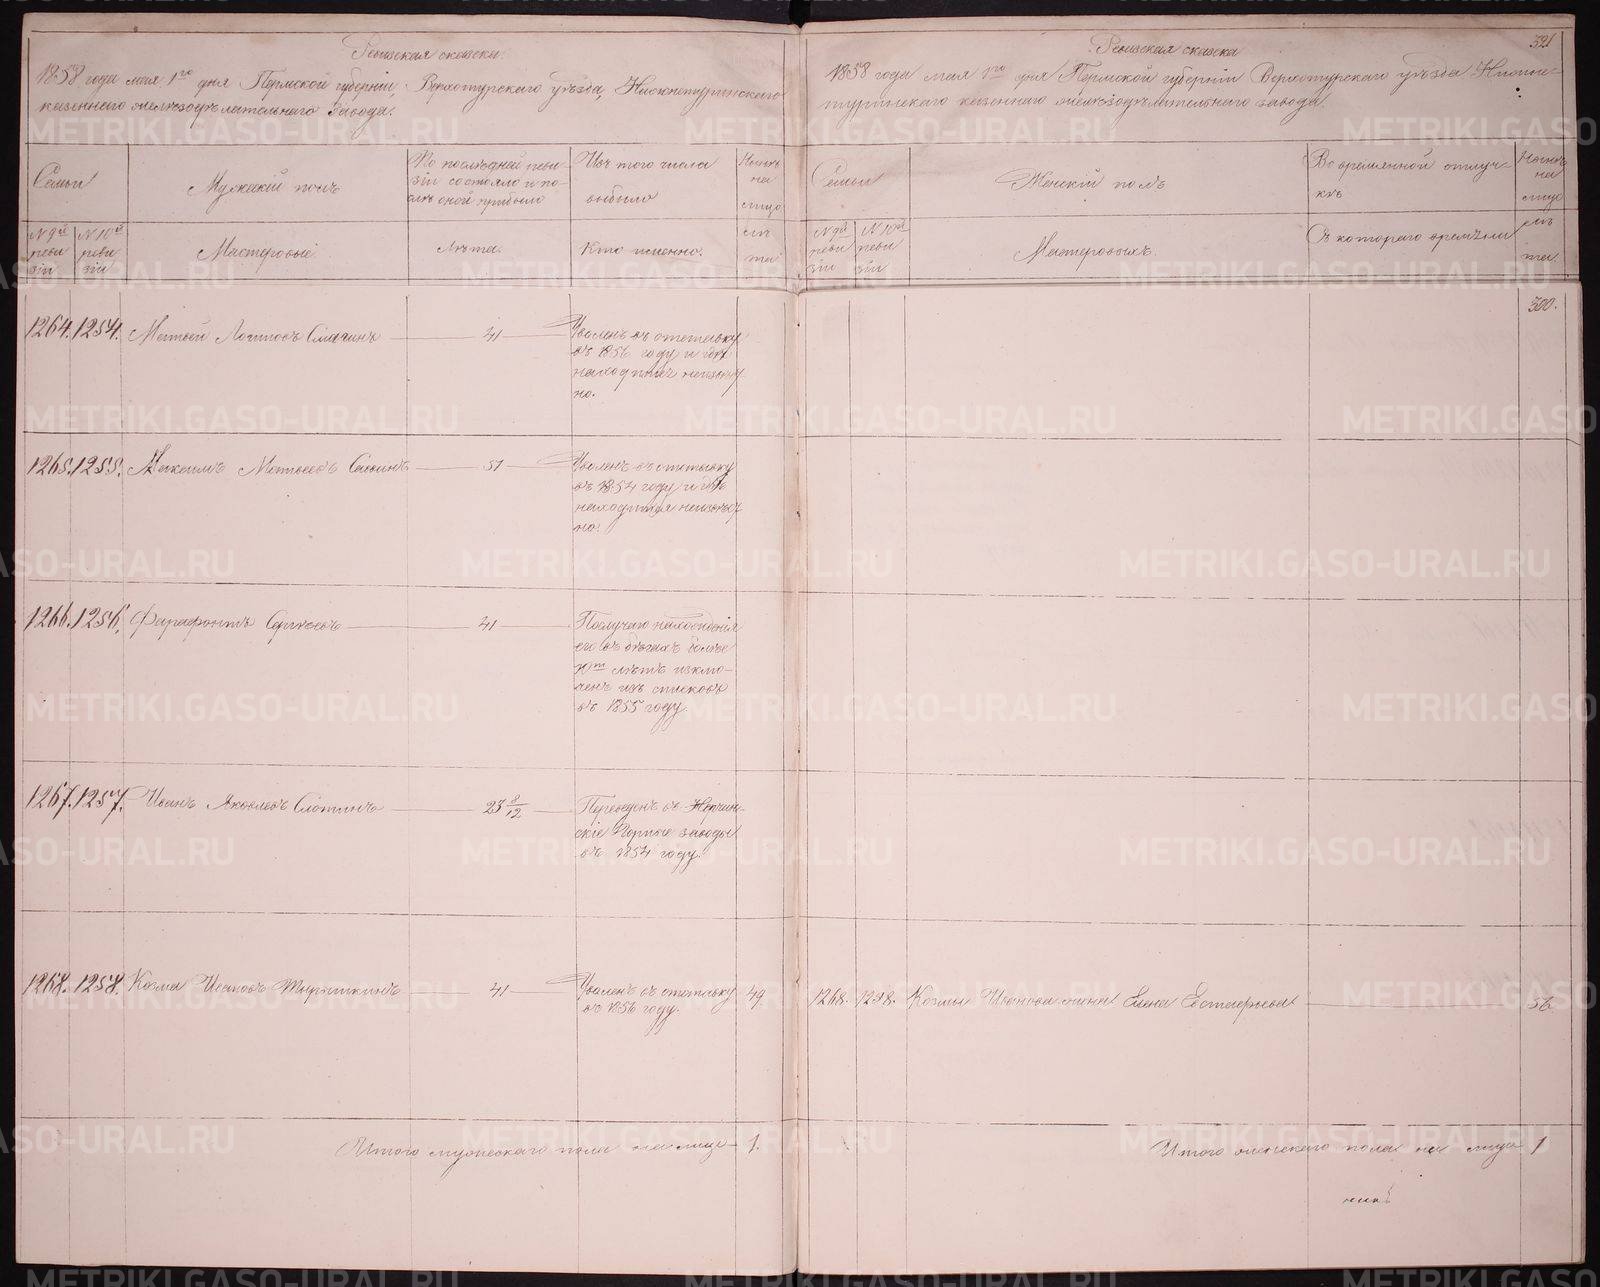 Ревизская сказка
1858 года мая 1го дня Пермской губернiи Верхотурскаго уѣзда, Нижнетуринскаго
казеннаго желѣзодѣлательнаго Завода.
Семьи
Мужескiй полъ
По послѣдней реви-
зiи состояло и по-
слѣ оной прибыло
Изъ того числа
выбыло
Нынѣ
на
лицо
№ 9й
реви
зiи
№ 10й
реви
зiи
Мастеровые
Лѣта.
Кто именно.
лѣ
та
1264. 1254. Матвей Логиновъ 41
Уволенъ въ отставку
въ 1856 году и гдѣ
находится неизвѣст
но.
1265. 1255. Максимъ Матвеевъ Савинъ 51
Уволенъ въ отставку
въ 1854 году и гдѣ
находится неизвѣст
но.
1266. 1256. Фарафонтъ Сергѣевъ 41
По случаю нахожденiя
его въ бѣгахъ болѣе
лѣтъ исклю-
ченъ изъ списковъ
въ 1855 году.
1267. 1257. Иванъ Яковлевъ 23 8/12
Переведенъ въ Нерчин-
скiе Горные заводы
въ 1854 году.
1268. 1258. Козма Ивановъ 41
Уволенъ въ отставку 49
въ 1856 году.
Итого мужескаго пола на лицо 1.
321
Ревизская сказка
1858 года мая 1го дня Пермской губернiи Верхотурскаго уѣзда Нижне-
туринскаго казеннаго желѣзодѣлательнаго завода.
Семьи
Женскiй полъ
Во временной отлуч-
кѣ
Нынѣ
на
лицо
№ 9й
реви
зiи
№ 10й
реви
зiи
Мастеровыхъ.
Съ котораго времени
лѣ
та.
300.
1268. 1258. Козмы Иванова жена Елена Евстафьева 56
Итого женскаго пола на лицо 1
METRIKI.GASO-URAL.RU